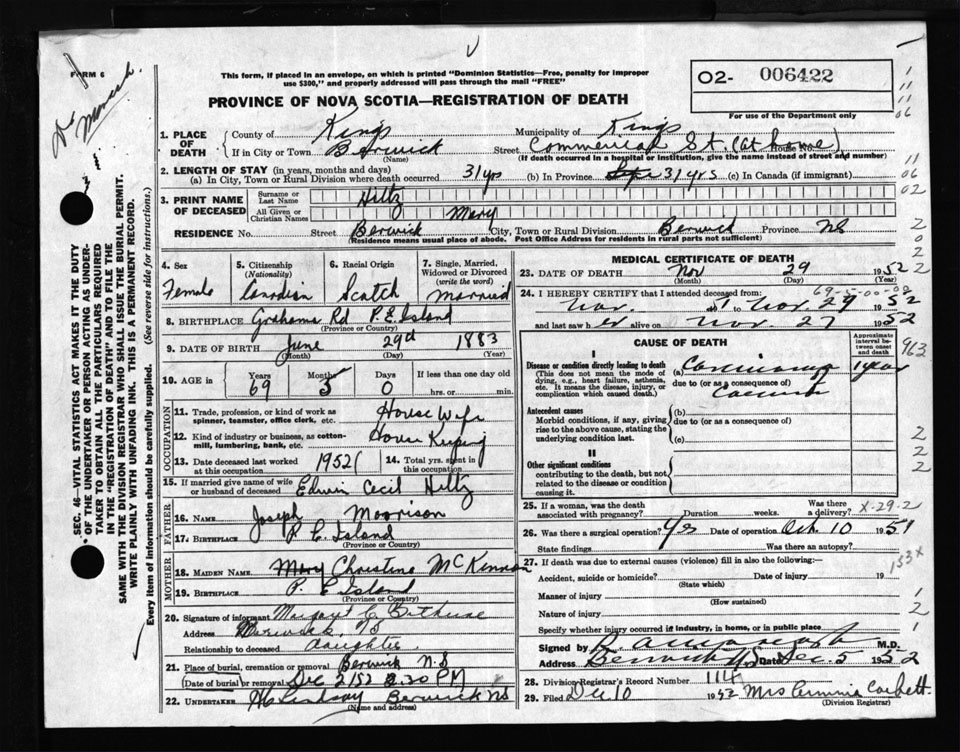 FORM 6
This form, if placed in an envelope, on which is printed "Dominion Statistics—Free, penalty for improper
use $300," and properly addressed will pass through the mail "FREE"
PROVINCE OF NOVA SCOTIA—REGISTRATION OF DEATH
02- 006422
For use of the Department only
1. PLACE OF DEATH
County of Kings Municipality of Kings
If in City or Town Berwick Street Commercial St. (at home)
(Name) (If death occurred in a hospital or institution, give the name instead of street and number)
2. LENGTH OF STAY (in years, months and days)
(a) In City, Town or Rural Division where death occurred 31 yrs (b) In Province 31 yrs (c) In Canada (if immigrant)
3. PRINT NAME OF DECEASED
Surname or Last Name Hiltz
All Given or Christian Names Mary
RESIDENCE No. Street Berwick City, Town or Rural Division Berwick Province NS
(Residence means usual place of abode. Post Office Address for residents in rural parts not sufficient)
4. Sex Female
5. Citizenship (Nationality) Canadian
6. Racial Origin Scotch
7. Single, Married, Widowed or Divorced (write the word) Married
8. BIRTHPLACE Grahams Rd P.E. Island
(Province or Country)
9. DATE OF BIRTH June 29th 1883
(Month) (Day) (Year)
10. AGE in Years 69 Months 5 Days 0 If less than one day old hrs. or min.
OCCUPATION
11. Trade, profession, or kind of work as spinner, teamster, office clerk, etc. House Wife
12. Kind of industry or business, as cotton-mill, lumbering, bank, etc. House Keeping
13. Date deceased last worked at this occupation 1952
14. Total yrs. spent in this occupation
15. If married give name of wife or husband of deceased Edwin Cecil Hiltz
FATHER
16. NAME Joseph Morrison
17. BIRTHPLACE P.E. Island
(Province or Country)
MOTHER
18. MAIDEN NAME Mary Christine McKinnon
19. BIRTHPLACE P.E. Island
(Province or Country)
20. Signature of informant Margaret C. Bethune
Address Berwick, NS
Relationship to deceased daughter
21. Place of burial, cremation or removal Berwick N.S
(Date of burial or removal) Dec 2 1952 2.30 PM
22. UNDERTAKER H Lindsay Berwick NS
(Name and address)
MEDICAL CERTIFICATE OF DEATH
23. DATE OF DEATH Nov 29 1952
(Month) (Day) (Year)
69-5-00-02
24. I HEREBY CERTIFY that I attended deceased from:
Nov. 51 Nov. 29 1952
and last saw her alive on Nov. 27 1952
CAUSE OF DEATH
Approximate interval between onset and death
I
Disease or condition directly leading to death
(This does not mean the mode of dying, e.g., heart failure, asthenia, etc. It means the disease, injury, or complication which caused death.)
(a) Carcinoma 1 year
due to (or as a consequence of)
Antecedent causes
Morbid conditions, if any, giving rise to the above cause, stating the underlying condition last.
(b)
due to (or as a consequence of)
(c)
II
Other significant conditions
contributing to the death, but not related to the disease or condition causing it.
25. If a woman, was the death associated with pregnancy? Duration weeks. Was there a delivery?
X-29-2
26. Was there surgical operation? Yes Date of operation Oct. 10 1951
State findings Was there an autopsy?
27. If death was due to external causes (violence) fill in also the following:
Accident, suicide or homicide? Date of injury 19
(State which)
Manner of injury
(How sustained)
Nature of injury
Specify whether injury occurred if industry, in home, or in public place
Signed by M.D.
Address Berwick NS Date Dec. 5 1952
28. Division Registrar's Record Number 114
29. Filed Dec 10 1952 Mrs Corbett
(Division Registrar)
SEC. 46—VITAL STATISTICS ACT MAKES IT THE DUTY
OF THE UNDERTAKER OR PERSON ACTING AS UNDER-
TAKER TO OBTAIN ALL THE PARTICULARS REQUIRED
IN THE "REGISTRATION OF DEATH" AND TO FILE THE
SAME WITH THE DIVISION REGISTRAR WHO SHALL ISSUE THE BURIAL PERMIT.
WRITE PLAINLY WITH UNFADING INK. THIS IS A PERMANENT RECORD.
Every item of information should be carefully supplied. (See reverse side for instructions.)
963
153x